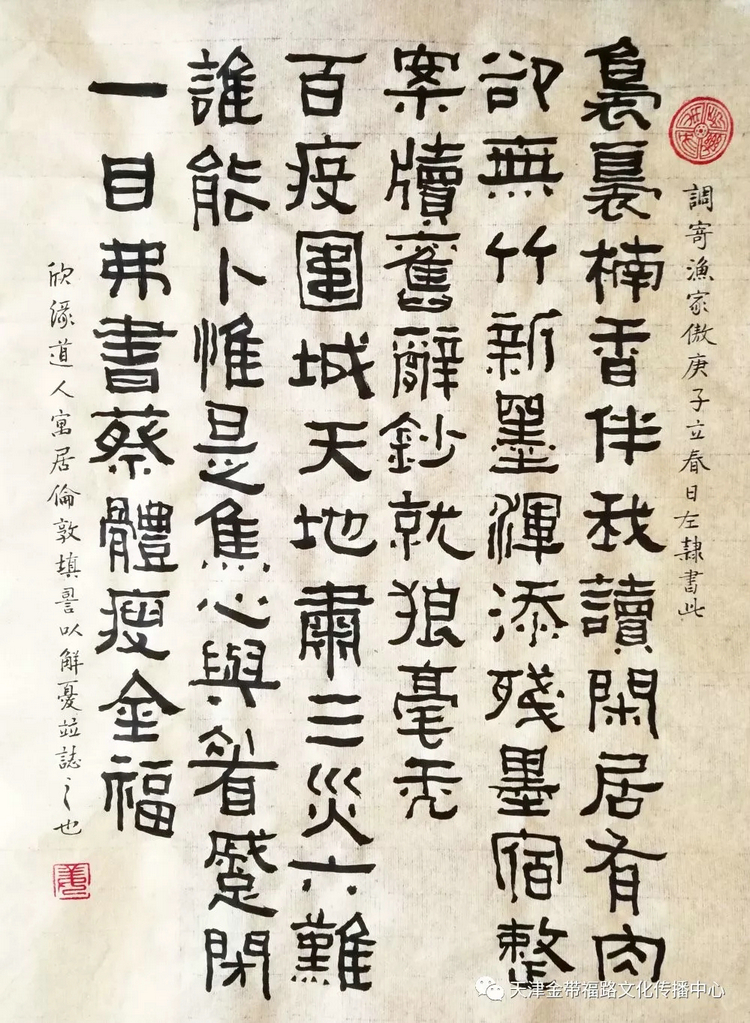 調寄漁家傲庚子立春日左隸書此
裊裊楠香伴我讀閑居有肉
卻無竹新墨渾添殘墨宿整
案牘舊辭鈔就狼毫禿
百疫圍城天地肅三災六難
誰能卜惟是焦心與眉蹙閉
一目弗書蔡體瘦金福
欣道人寓居倫敦填詞以解憂並誌之也
天津金带福路文化传播中心